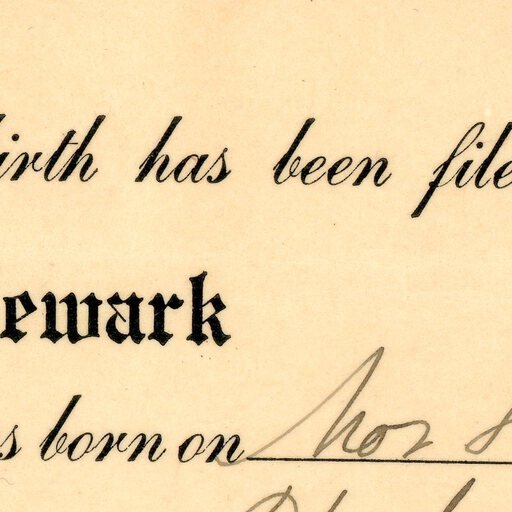 irth has been file
ewark
s born on Nov 8